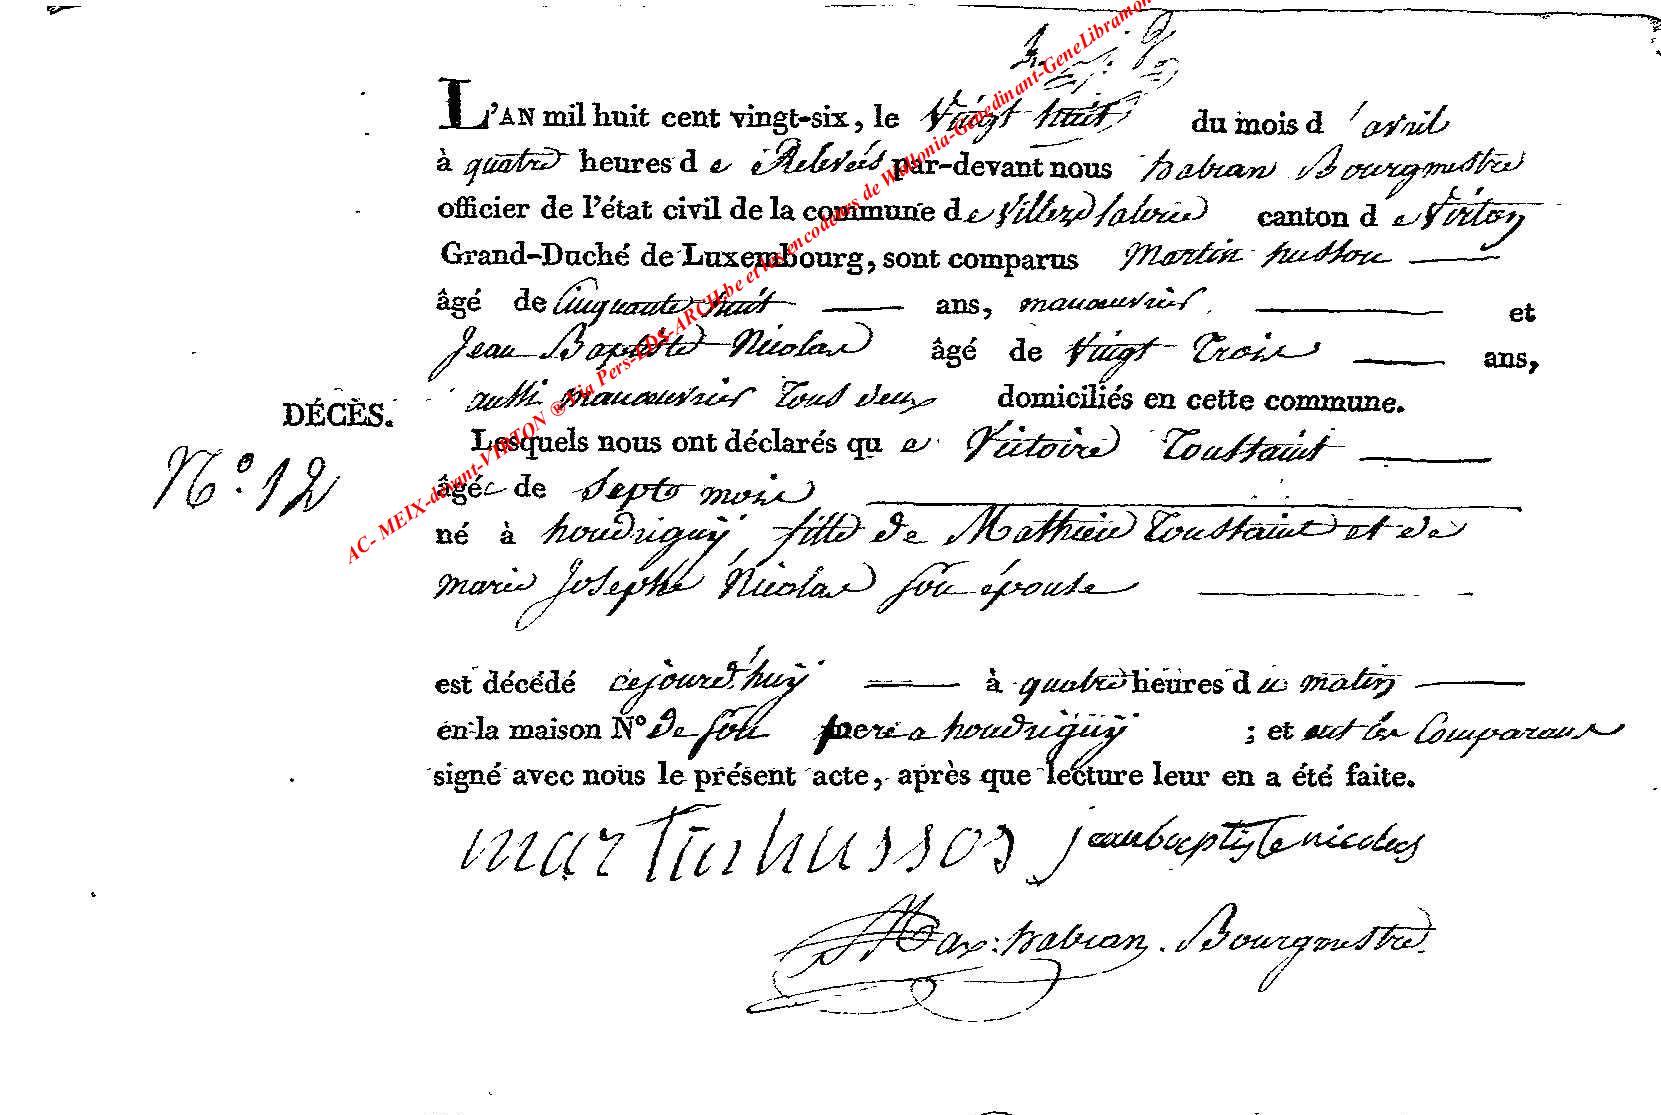 L'AN mil huit cent vingt-six, le Vingt huit du mois d'avril
à quatre heures de Relevés par-devant nous habran Bourgmestre
officier de l'état civil de la commune de Villers laloue canton de Virton
Grand-Duché de Luxembourg, sont comparus Martin husson
âgé de Cinquante huit ans, manœuvrier et
Jean Baptiste Nicolas âgé de Vingt Trois ans,
aussi manœuvrier tous deux domiciliés en cette commune.
DÉCÈS.
Lesquels nous ont déclarés que Victoire Toussaint
N.° 12
âgée de Septs mois
né à houdriguÿ, fille de Mathieu Toussaint et de
marie Josephe Nicolas son épouse
est décédé cejourd'huÿ à quatre heures du matin
en la maison N° de son pere a houdriguÿ ; et ont les Comparans
signé avec nous le présent acte, après que lecture leur en a été faite.
martin husson jeanbaptiste nicolas
Max: habran. Bourgmestre.
AC- MEIX-devant-VIRTON ® Via Pers-LDS-ARCH.be et les encodeurs de Wallonia-Genedinant-GeneLibramon